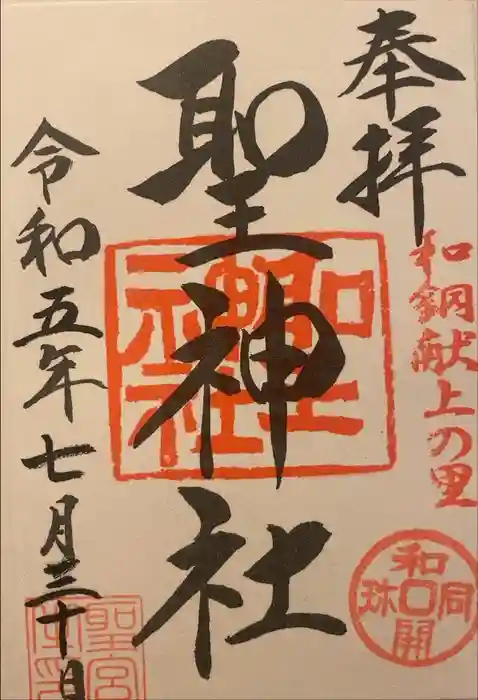 奉拝
和銅献上の里
聖神社
令和五年七月三十日
聖神社
和同開珎
聖宮